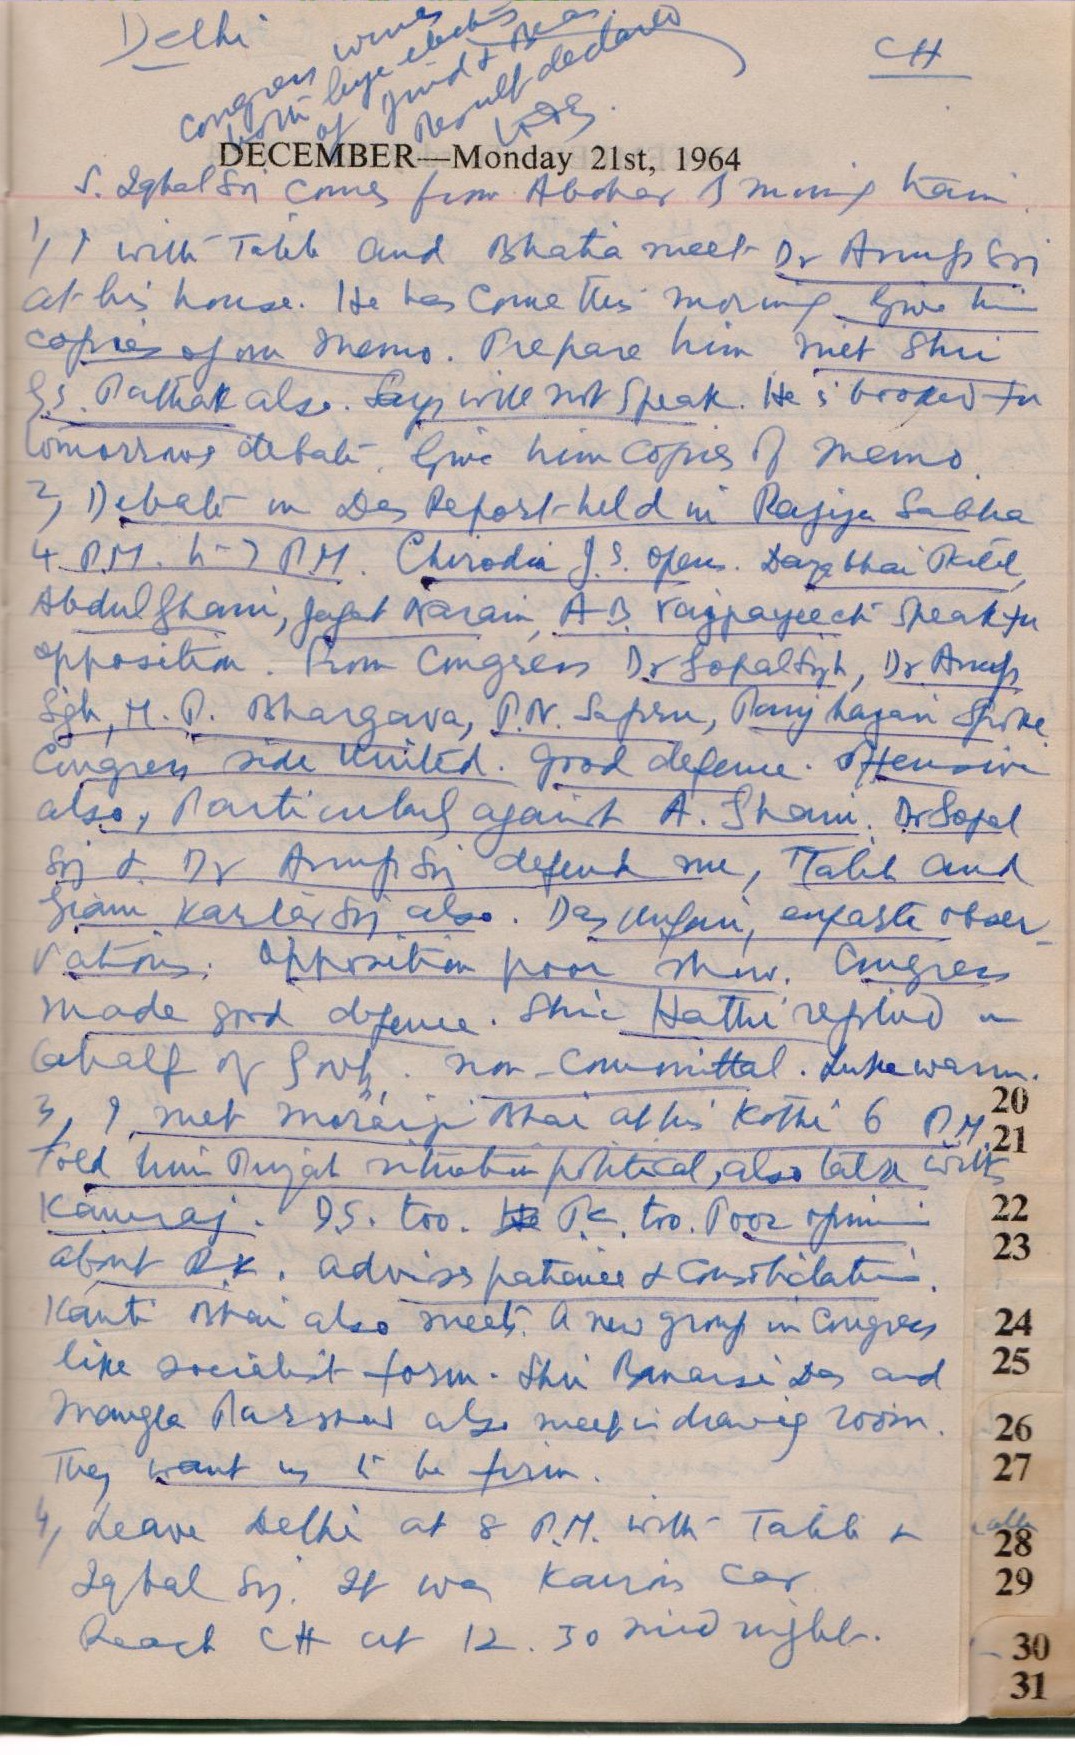 Delhi
CH
Congress wins
both bye elections
of Jind &
Result declared
DECEMBER—Monday 21st, 1964
S. Iqbal Sgj comes from Abohar by morning train.
1, I with Talib and Bhatia meet Dr Anup Sgj
at his house. He has come this morning. Give him
copies of our memo. Prepare him met Shri
G.S. Pathak also. Says will not speak. He is booked for
tomorrows debate. Give him copies of memo.
2, Debate on Das Report held in Rajya Sabha
4 P.M. to 7 P.M. Chirodia J.S. opens. Dayabhai Patel,
Abdul Ghani, Jagat Narain, A.B. Vajpayee etc speak for
opposition. From Congress Dr Gopal Singh, Dr Anup
Sgh, M.P. Bhargava, P.N. Sapru, Panjhazari spoke.
Congress side United. good defence. offensive
also, Particularly against A. Ghani. Dr Gopal
Sgj & Dr Anup Sgj defend me, Talib and
Giani Kartar Sgj also. Das unfair, exparte obser-
vations. Opposition poor show. Congress
made good defence. Shri Hathi replied on
behalf of Govt. non-committal. Lukewarm.
3, I met Morarji Bhai at his Kothi 6 P.M.
Told him Punjab situation political, also talk with
Kamraj. D.S. too. He P.K. too. Poor opinion
about R.K. advises patience & consolidation.
Kanti Bhai also meets. A new group in Congress
like socialist form. Shri Banarsi Das and
Mangla Parshad also meet in drawing room.
They want us to be firm.
4, Leave Delhi at 8 P.M. with Talib &
Iqbal Sgj. It was Kairon car
Reach CH at 12.30 midnight.
20
21
22
23
24
25
26
27
28
29
30
31